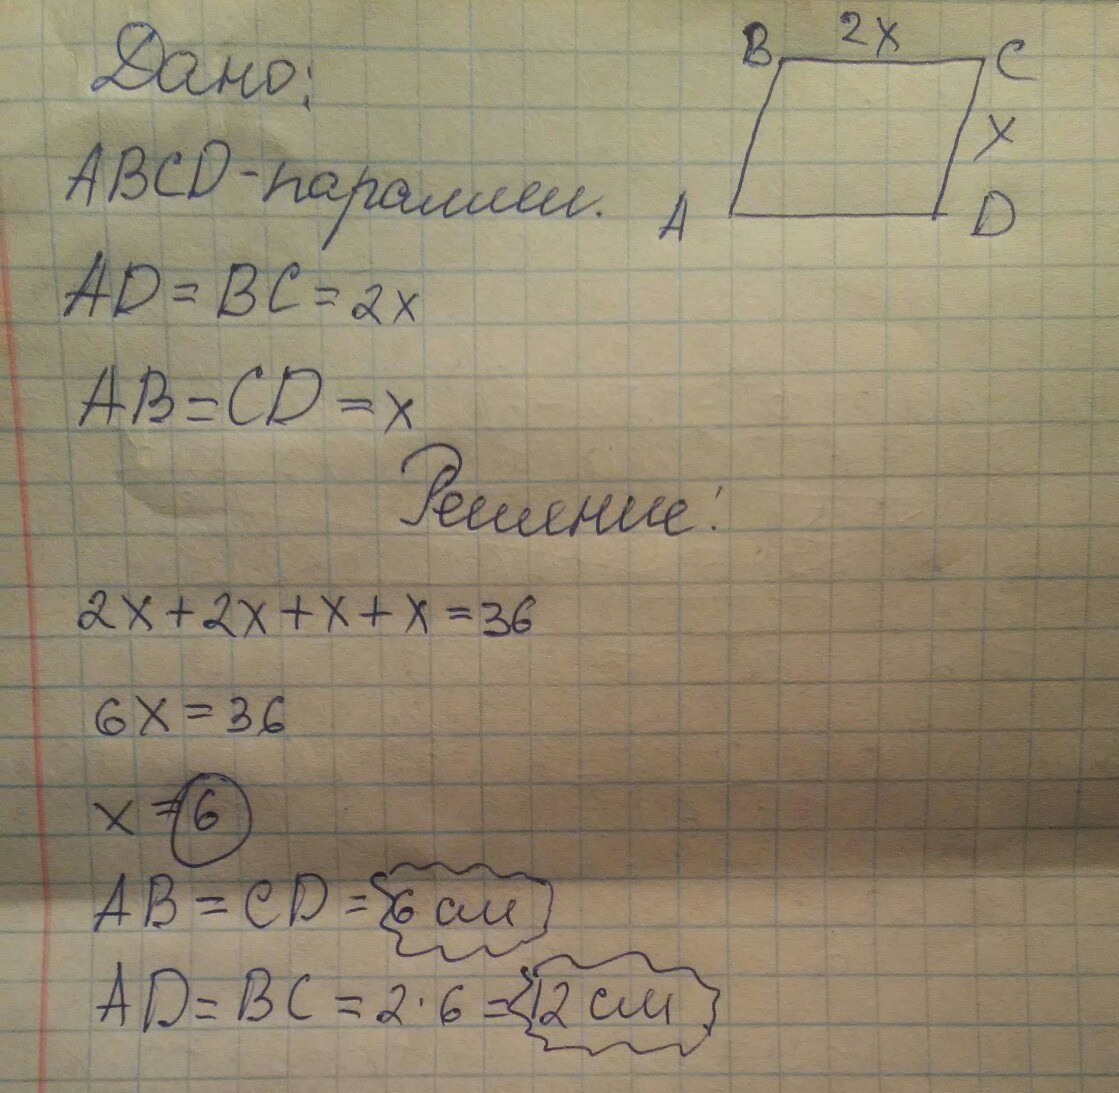 Дано:
ABCD-паралл.
AD=BC=2x
AB=CD=x
B 2x C
x
A D
Решение:
2x+2x+x+x=36
6x=36
x=6
AB=CD=6 см
AD=BC=2·6=12 см